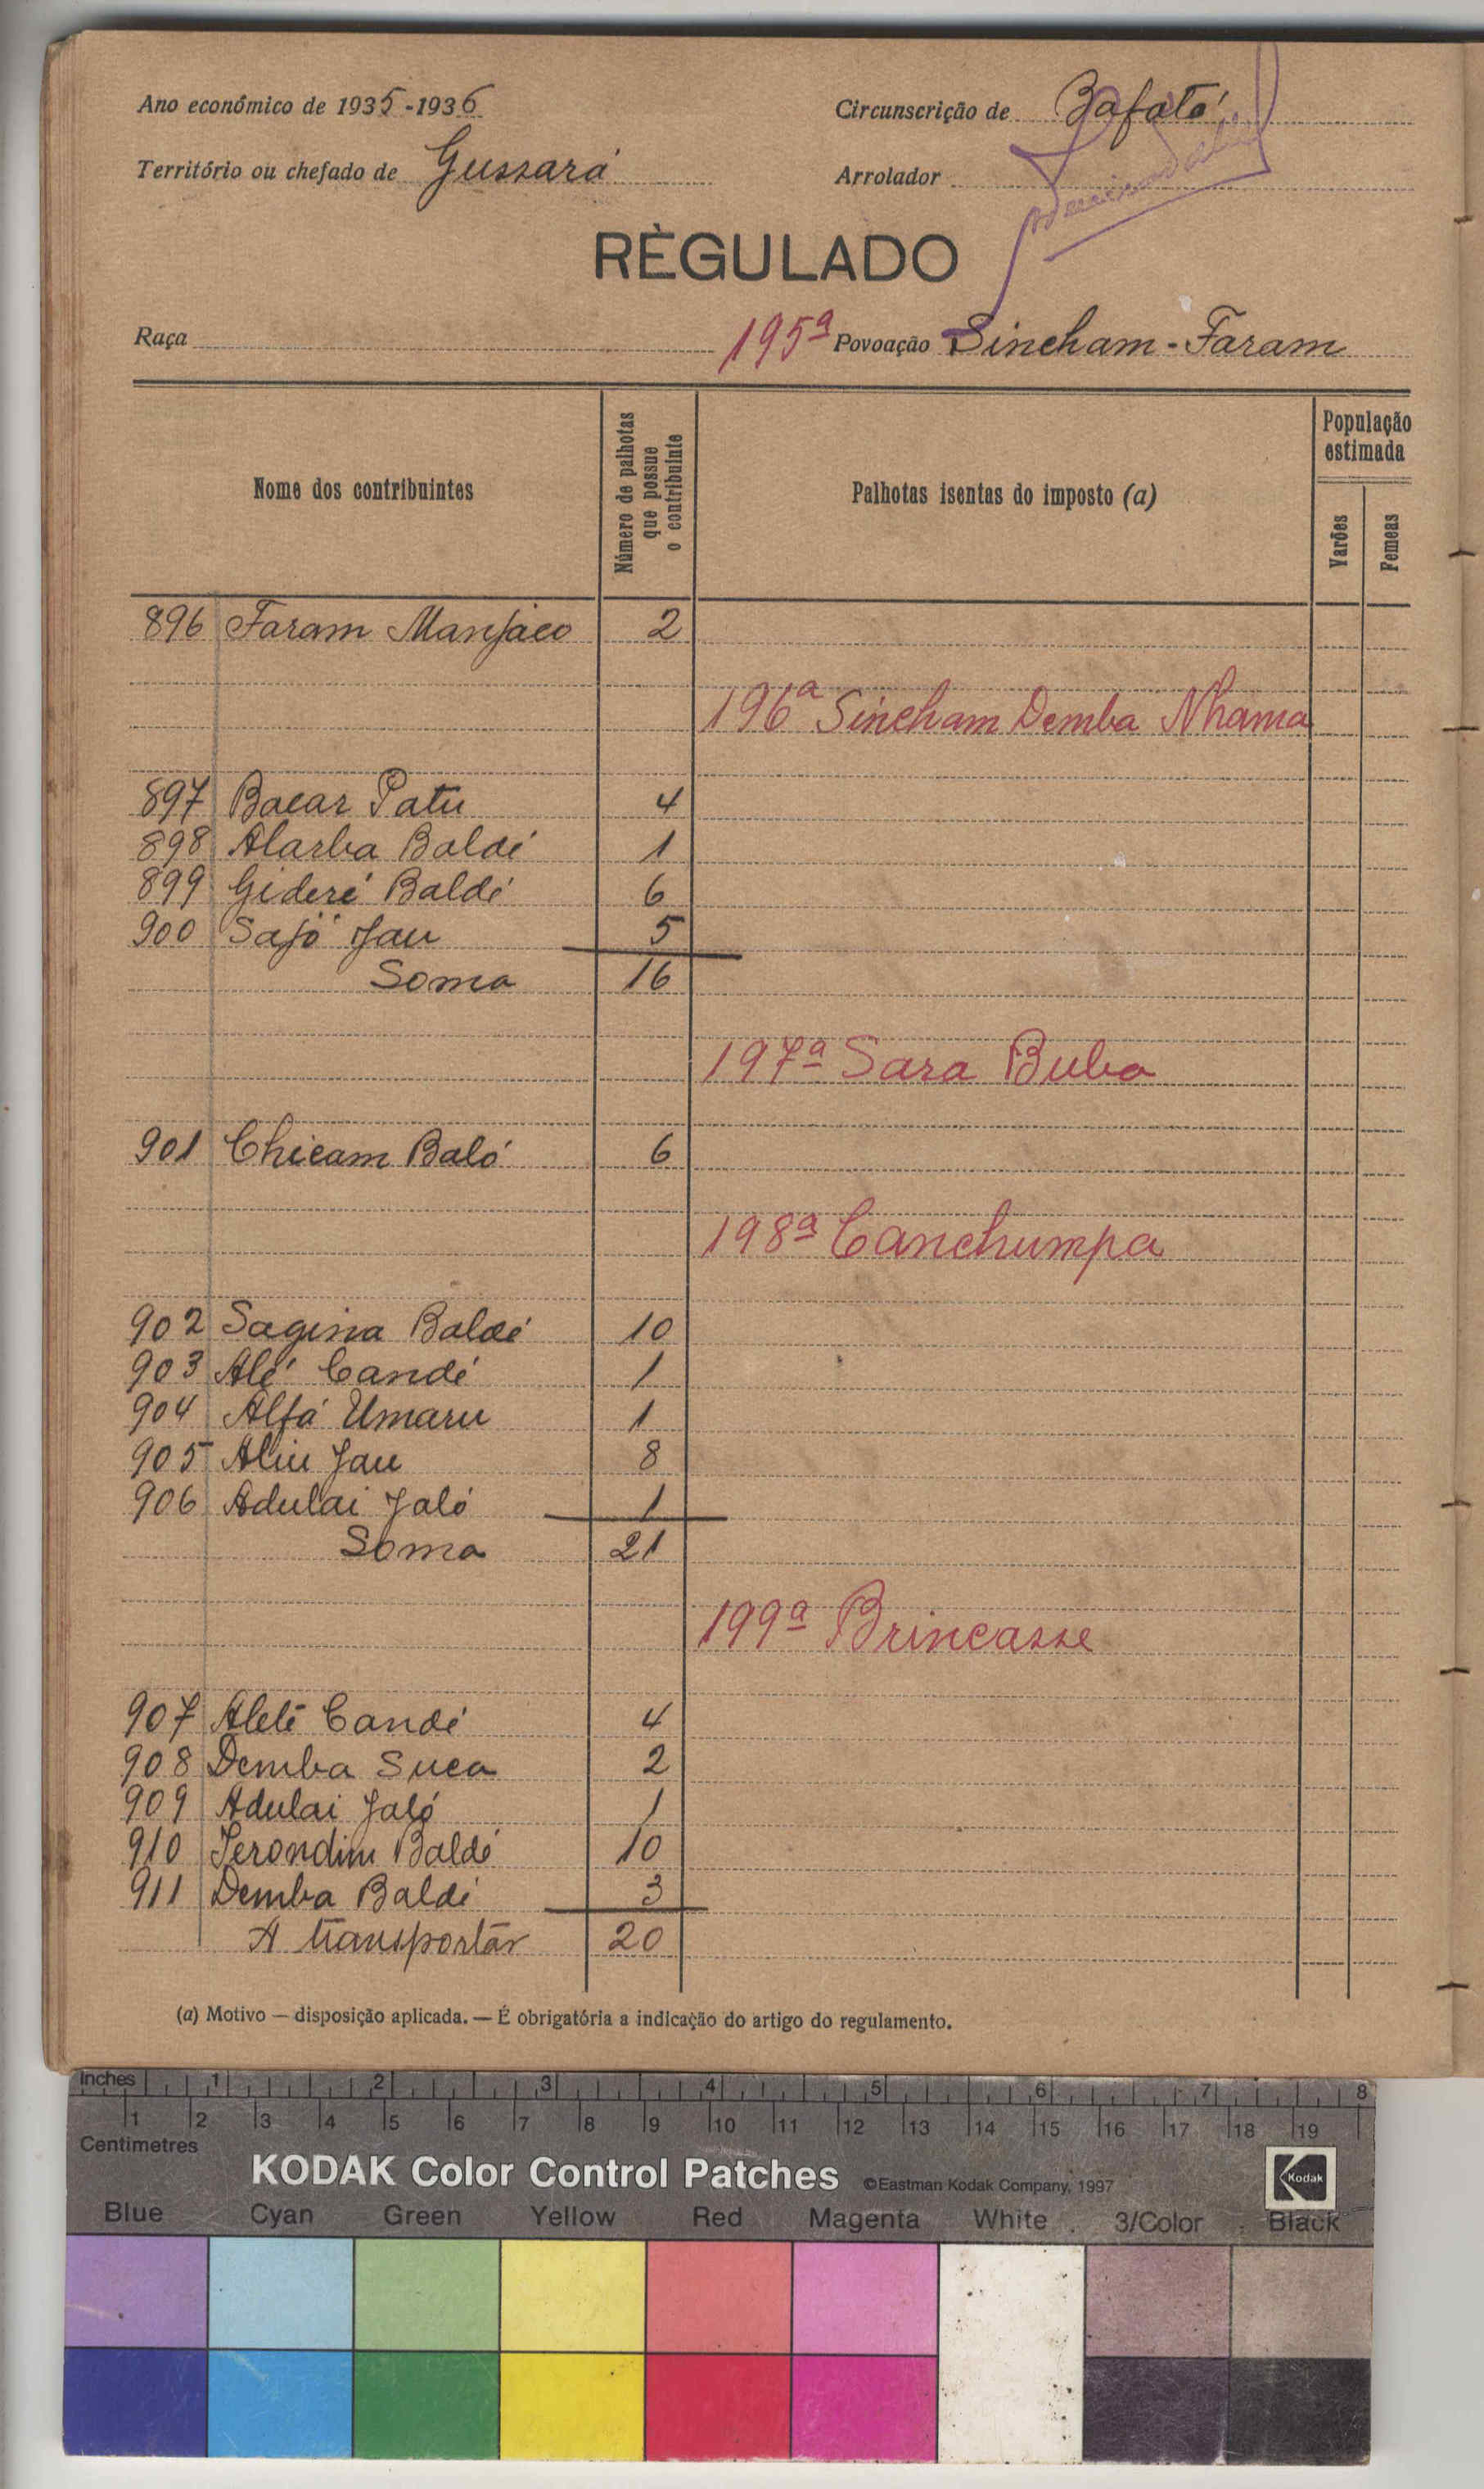 Ano económico de 1935-1936
Circunscrição de Bafatá
Território ou chefado de Gussará
Arrolador
RÈGULADO
Raça
195ª Povoação Sincham-Faram
Nome dos contribuintes
Número de palhotas que possue o contribuinte
Palhotas isentas do imposto (a)
População estimada
Varões
Femeas
896 Faram Manjaco 2
196ª Sincham Demba Nhama
897 Bacar Patu 4
898 Alarba Baldé 1
899 Gideré Baldé 6
900 Sajó Jau 5
Soma 16
197ª Sara Buba
901 Chicam Baló 6
198ª Canchumpa
902 Sagina Baldé 10
903 Alé Candé 1
904 Alfá Umaru 1
905 Aliu Jau 8
906 Adulai Jaló 1
Soma 21
199ª Brincasse
907 Aleté Candé 4
908 Demba Suca 2
909 Adulai Jaló 1
910 Jerondim Baldé 10
911 Demba Baldé 3
A transportar 20
(a) Motivo — disposição aplicada. — É obrigatória a indicação do artigo do regulamento.
Inches 1 2 3 4 5 6 7 8
1 2 3 4 5 6 7 8 9 10 11 12 13 14 15 16 17 18 19
Centimetres
KODAK Color Control Patches ©Eastman Kodak Company, 1997
Kodak
Blue Cyan Green Yellow Red Magenta White 3/Color Black